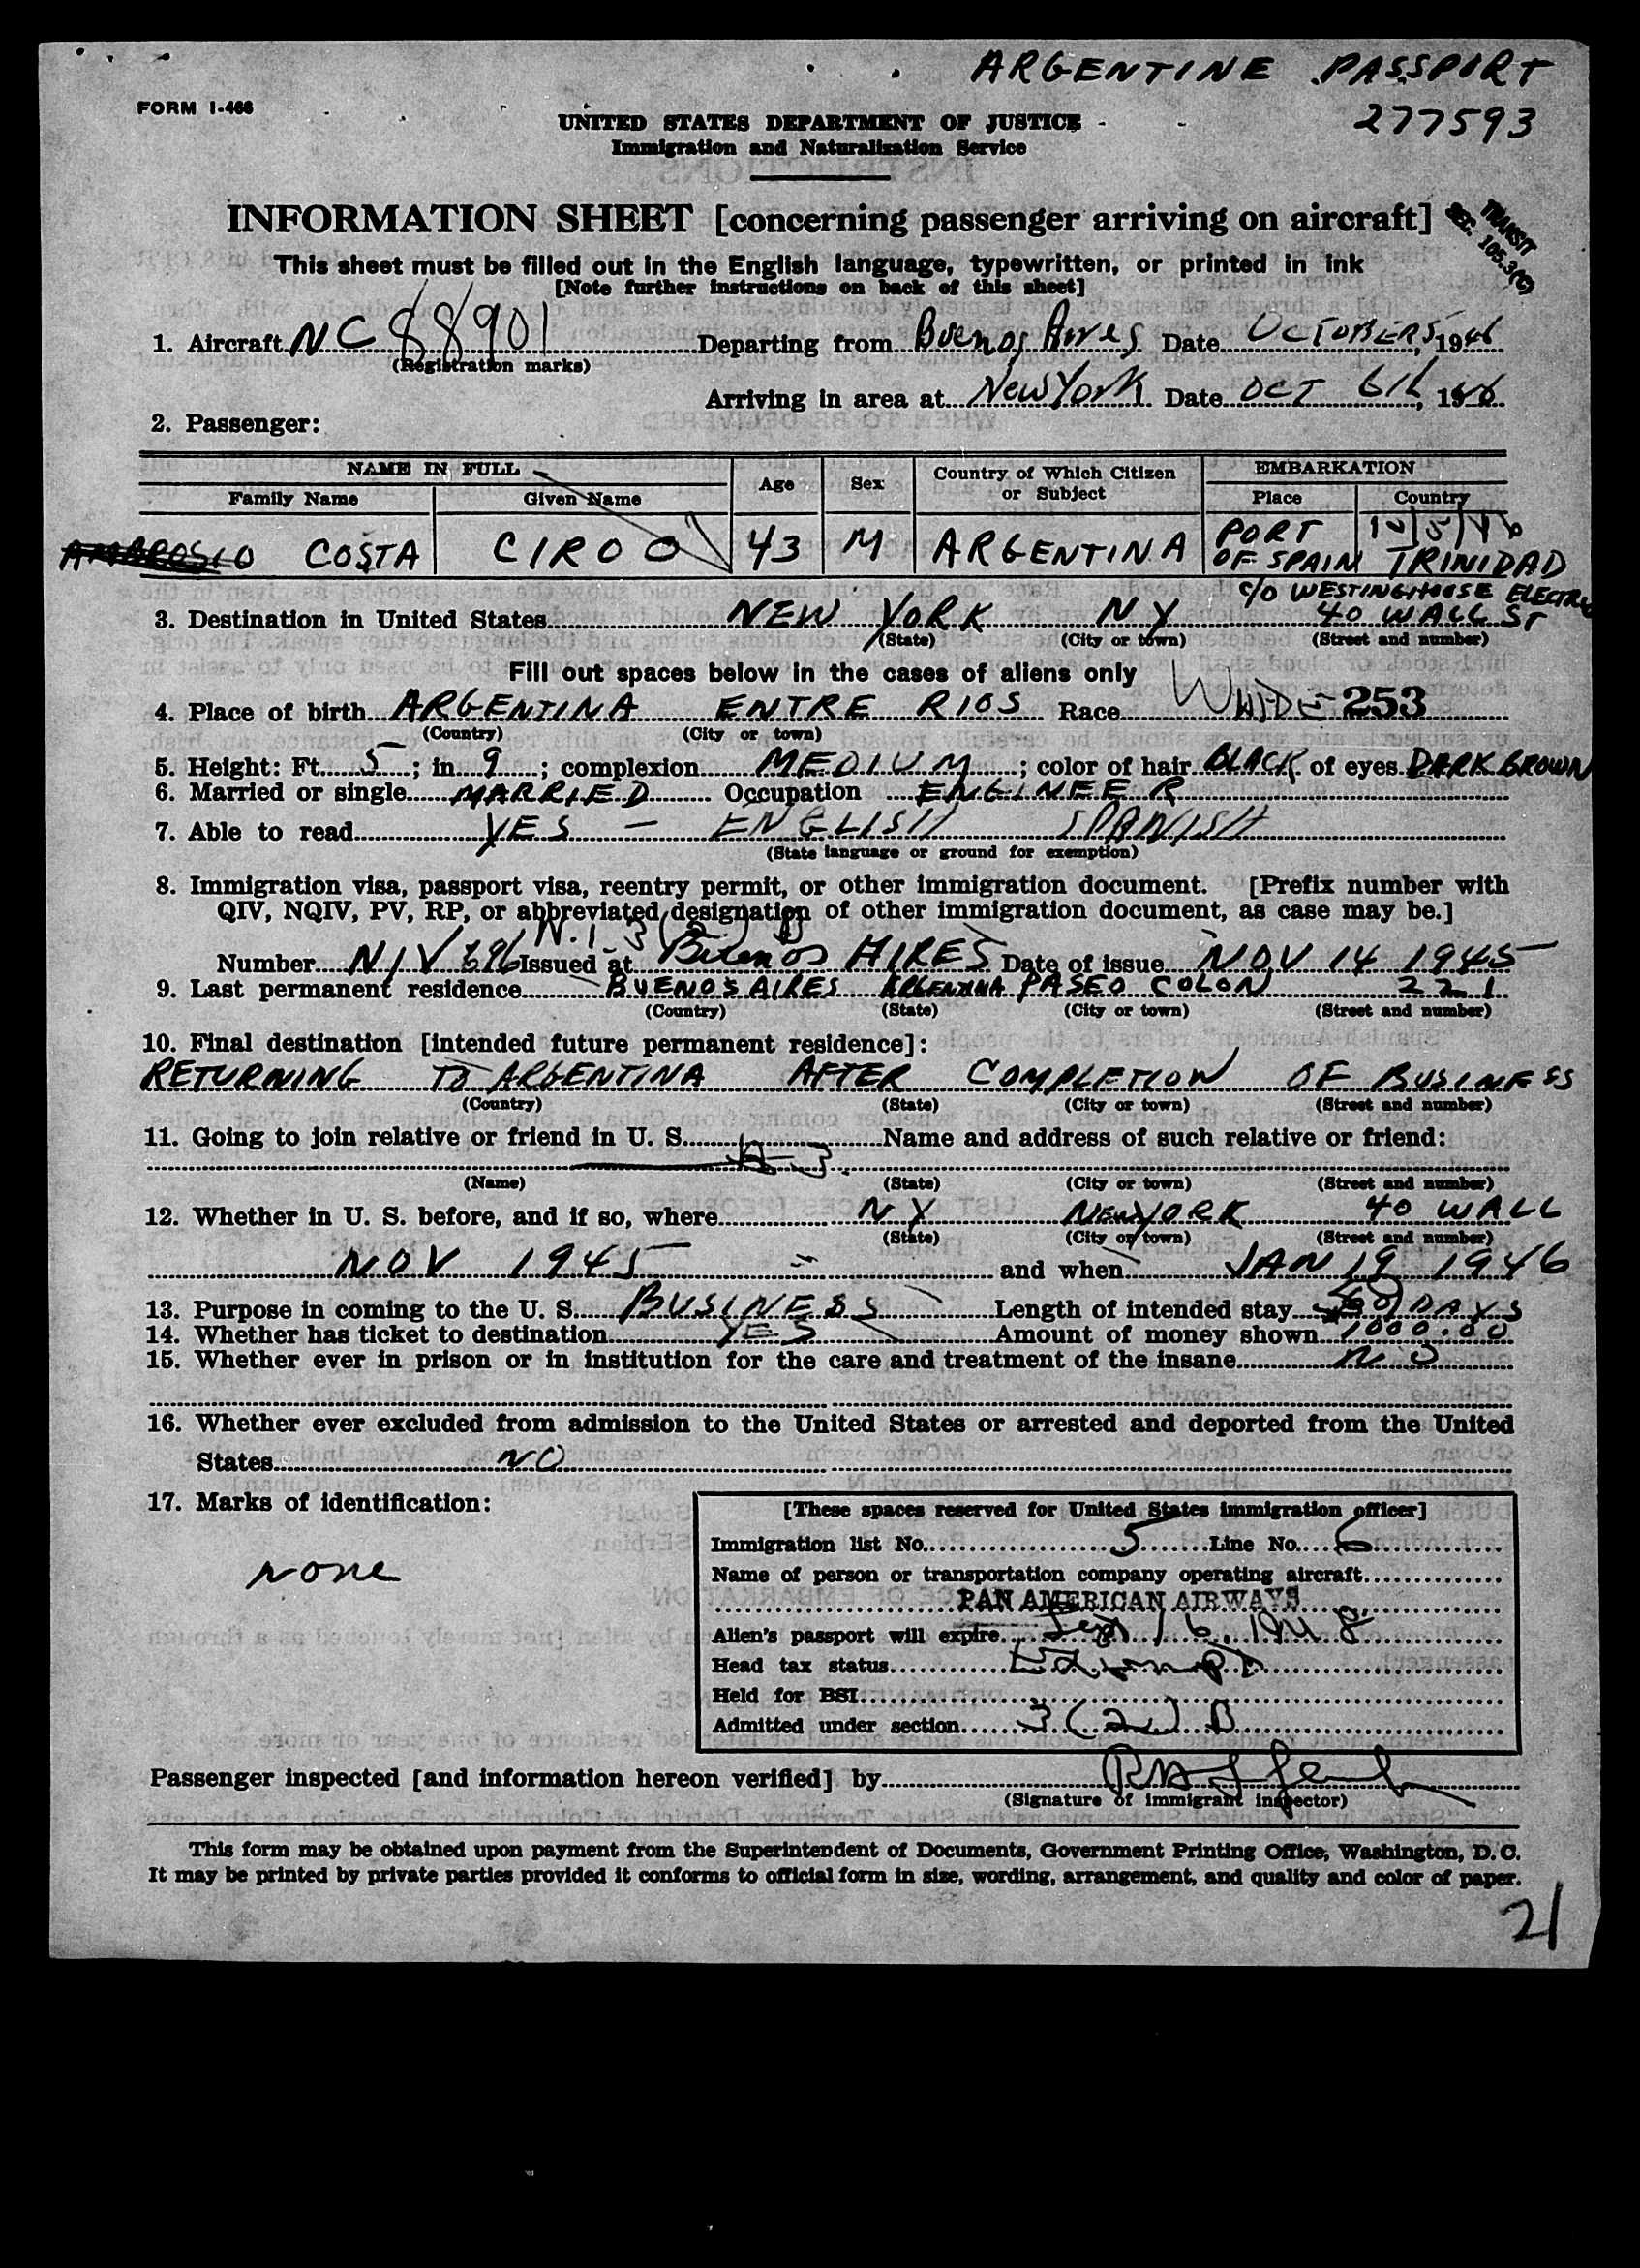 ARGENTINE PASSPORT
277593
FORM I-466
UNITED STATES DEPARTMENT OF JUSTICE
Immigration and Naturalization Service
INFORMATION SHEET [concerning passenger arriving on aircraft]
TRANSIT
SEC. 105.3(c)
This sheet must be filled out in the English language, typewritten, or printed in ink
[Note further instructions on back of this sheet]
1. Aircraft NC 88901 Departing from Buenos Aires Date OCTOBER 5, 1946
(Registration marks)
Arriving in area at New York Date OCT 6th, 1946
2. Passenger:
NAME IN FULL Age Sex Country of Which Citizen or Subject EMBARKATION
Family Name Given Name Place Country
10/5/46
AMBROSIO COSTA CIRO O 43 M ARGENTINA PORT OF SPAIN TRINIDAD
C/O WESTINGHOUSE ELECTRIC
3. Destination in United States NEW YORK NY 40 WALL ST
(State) (City or town) (Street and number)
Fill out spaces below in the cases of aliens only
4. Place of birth ARGENTINA ENTRE RIOS Race WHITE 253
(Country) (City or town)
5. Height: Ft. 5; in. 9; complexion MEDIUM; color of hair BLACK of eyes DARK BROWN
6. Married or single MARRIED Occupation ENGINEER
7. Able to read YES - ENGLISH SPANISH
(State language or ground for exemption)
8. Immigration visa, passport visa, reentry permit, or other immigration document. [Prefix number with
QIV, NQIV, PV, RP, or abbreviated designation of other immigration document, as case may be.]
Number NIV 696 Issued at Buenos AIRES Date of issue NOV 14 1945
9. Last permanent residence BUENOS AIRES ARGENTINA PASEO COLON 221
(Country) (State) (City or town) (Street and number)
10. Final destination [intended future permanent residence]:
RETURNING TO ARGENTINA AFTER COMPLETION OF BUSINESS
(Country) (State) (City or town) (Street and number)
11. Going to join relative or friend in U. S. Name and address of such relative or friend:
(Name) (State) (City or town) (Street and number)
12. Whether in U. S. before, and if so, where NY NEW YORK 40 WALL
(State) (City or town) (Street and number)
NOV 1945 and when JAN 19 1946
13. Purpose in coming to the U. S. BUSINESS Length of intended stay 60 DAYS
14. Whether has ticket to destination YES Amount of money shown 1000.00
15. Whether ever in prison or in institution for the care and treatment of the insane NO
16. Whether ever excluded from admission to the United States or arrested and deported from the United
States NO
17. Marks of identification:
none
[These spaces reserved for United States immigration officer]
Immigration list No. 5 Line No. 6
Name of person or transportation company operating aircraft
PAN AMERICAN AIRWAYS
Alien's passport will expire Sept 16, 1948
Head tax status
Held for BSI
Admitted under section 3(2) B
Passenger inspected [and information hereon verified] by
(Signature of immigrant inspector)
This form may be obtained upon payment from the Superintendent of Documents, Government Printing Office, Washington, D. C.
It may be printed by private parties provided it conforms to official form in size, wording, arrangement, and quality and color of paper.
21